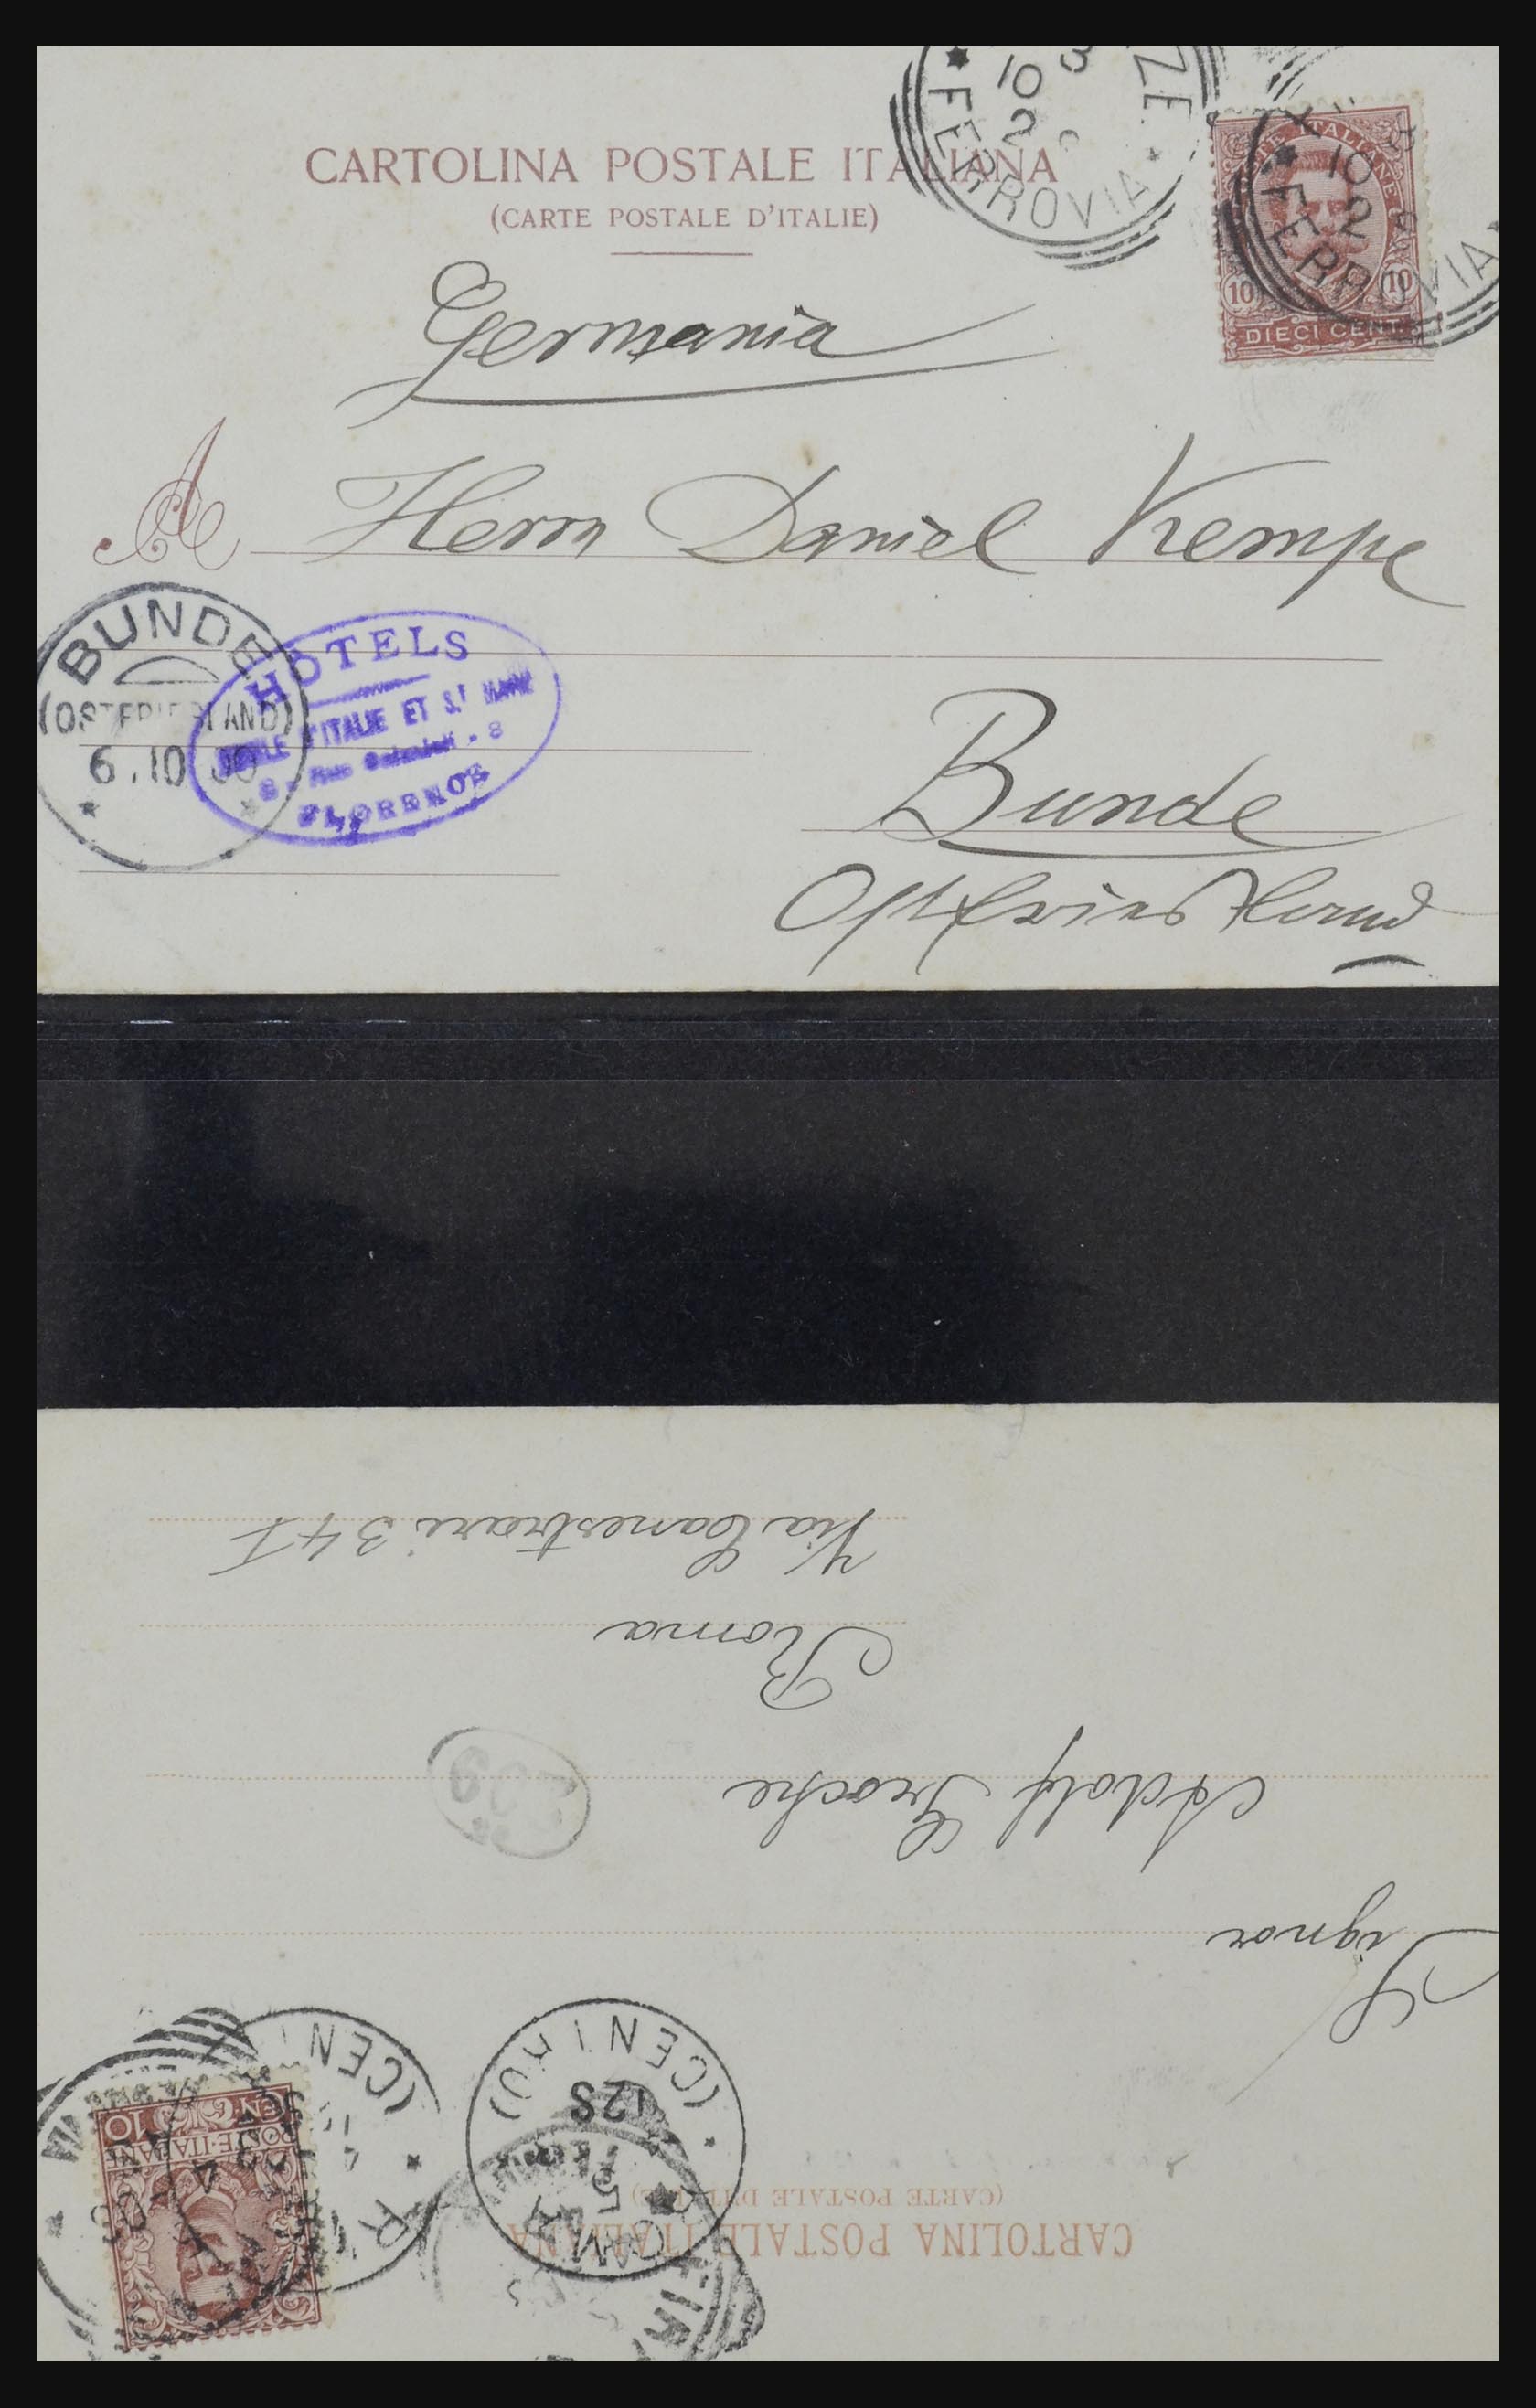 CARTOLINA POSTALE ITALIANA
(CARTE POSTALE D'ITALIE)
ZE
10
2
FERROVIA
POSTE ITALIANE
10 10
DIECI CENT.
10
2
FERROVIA
Germania
A Herrn Daniel Kempe
BUNDE
(OSTFRIESLAND)
6.10 00
HÔTELS
D'ITALIE ET St
8 8
FLORENCE
Bunde
Ostfriesland
CARTOLINA POSTALE ITALIANA
(CARTE POSTALE D'ITALIE)
FIR
ROMA
5
12S
(CENTRO)
R
(CEN
POSTE·ITALIANE
CEN·10
Signor
Adolf Groche
Roma
Via Canestrari 34 I